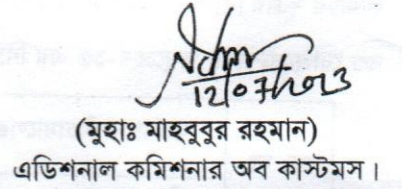 12/07/2023
(মুহাঃ মাহবুবুর রহমান)
এডিশনাল কমিশনার অব কাস্টমস।